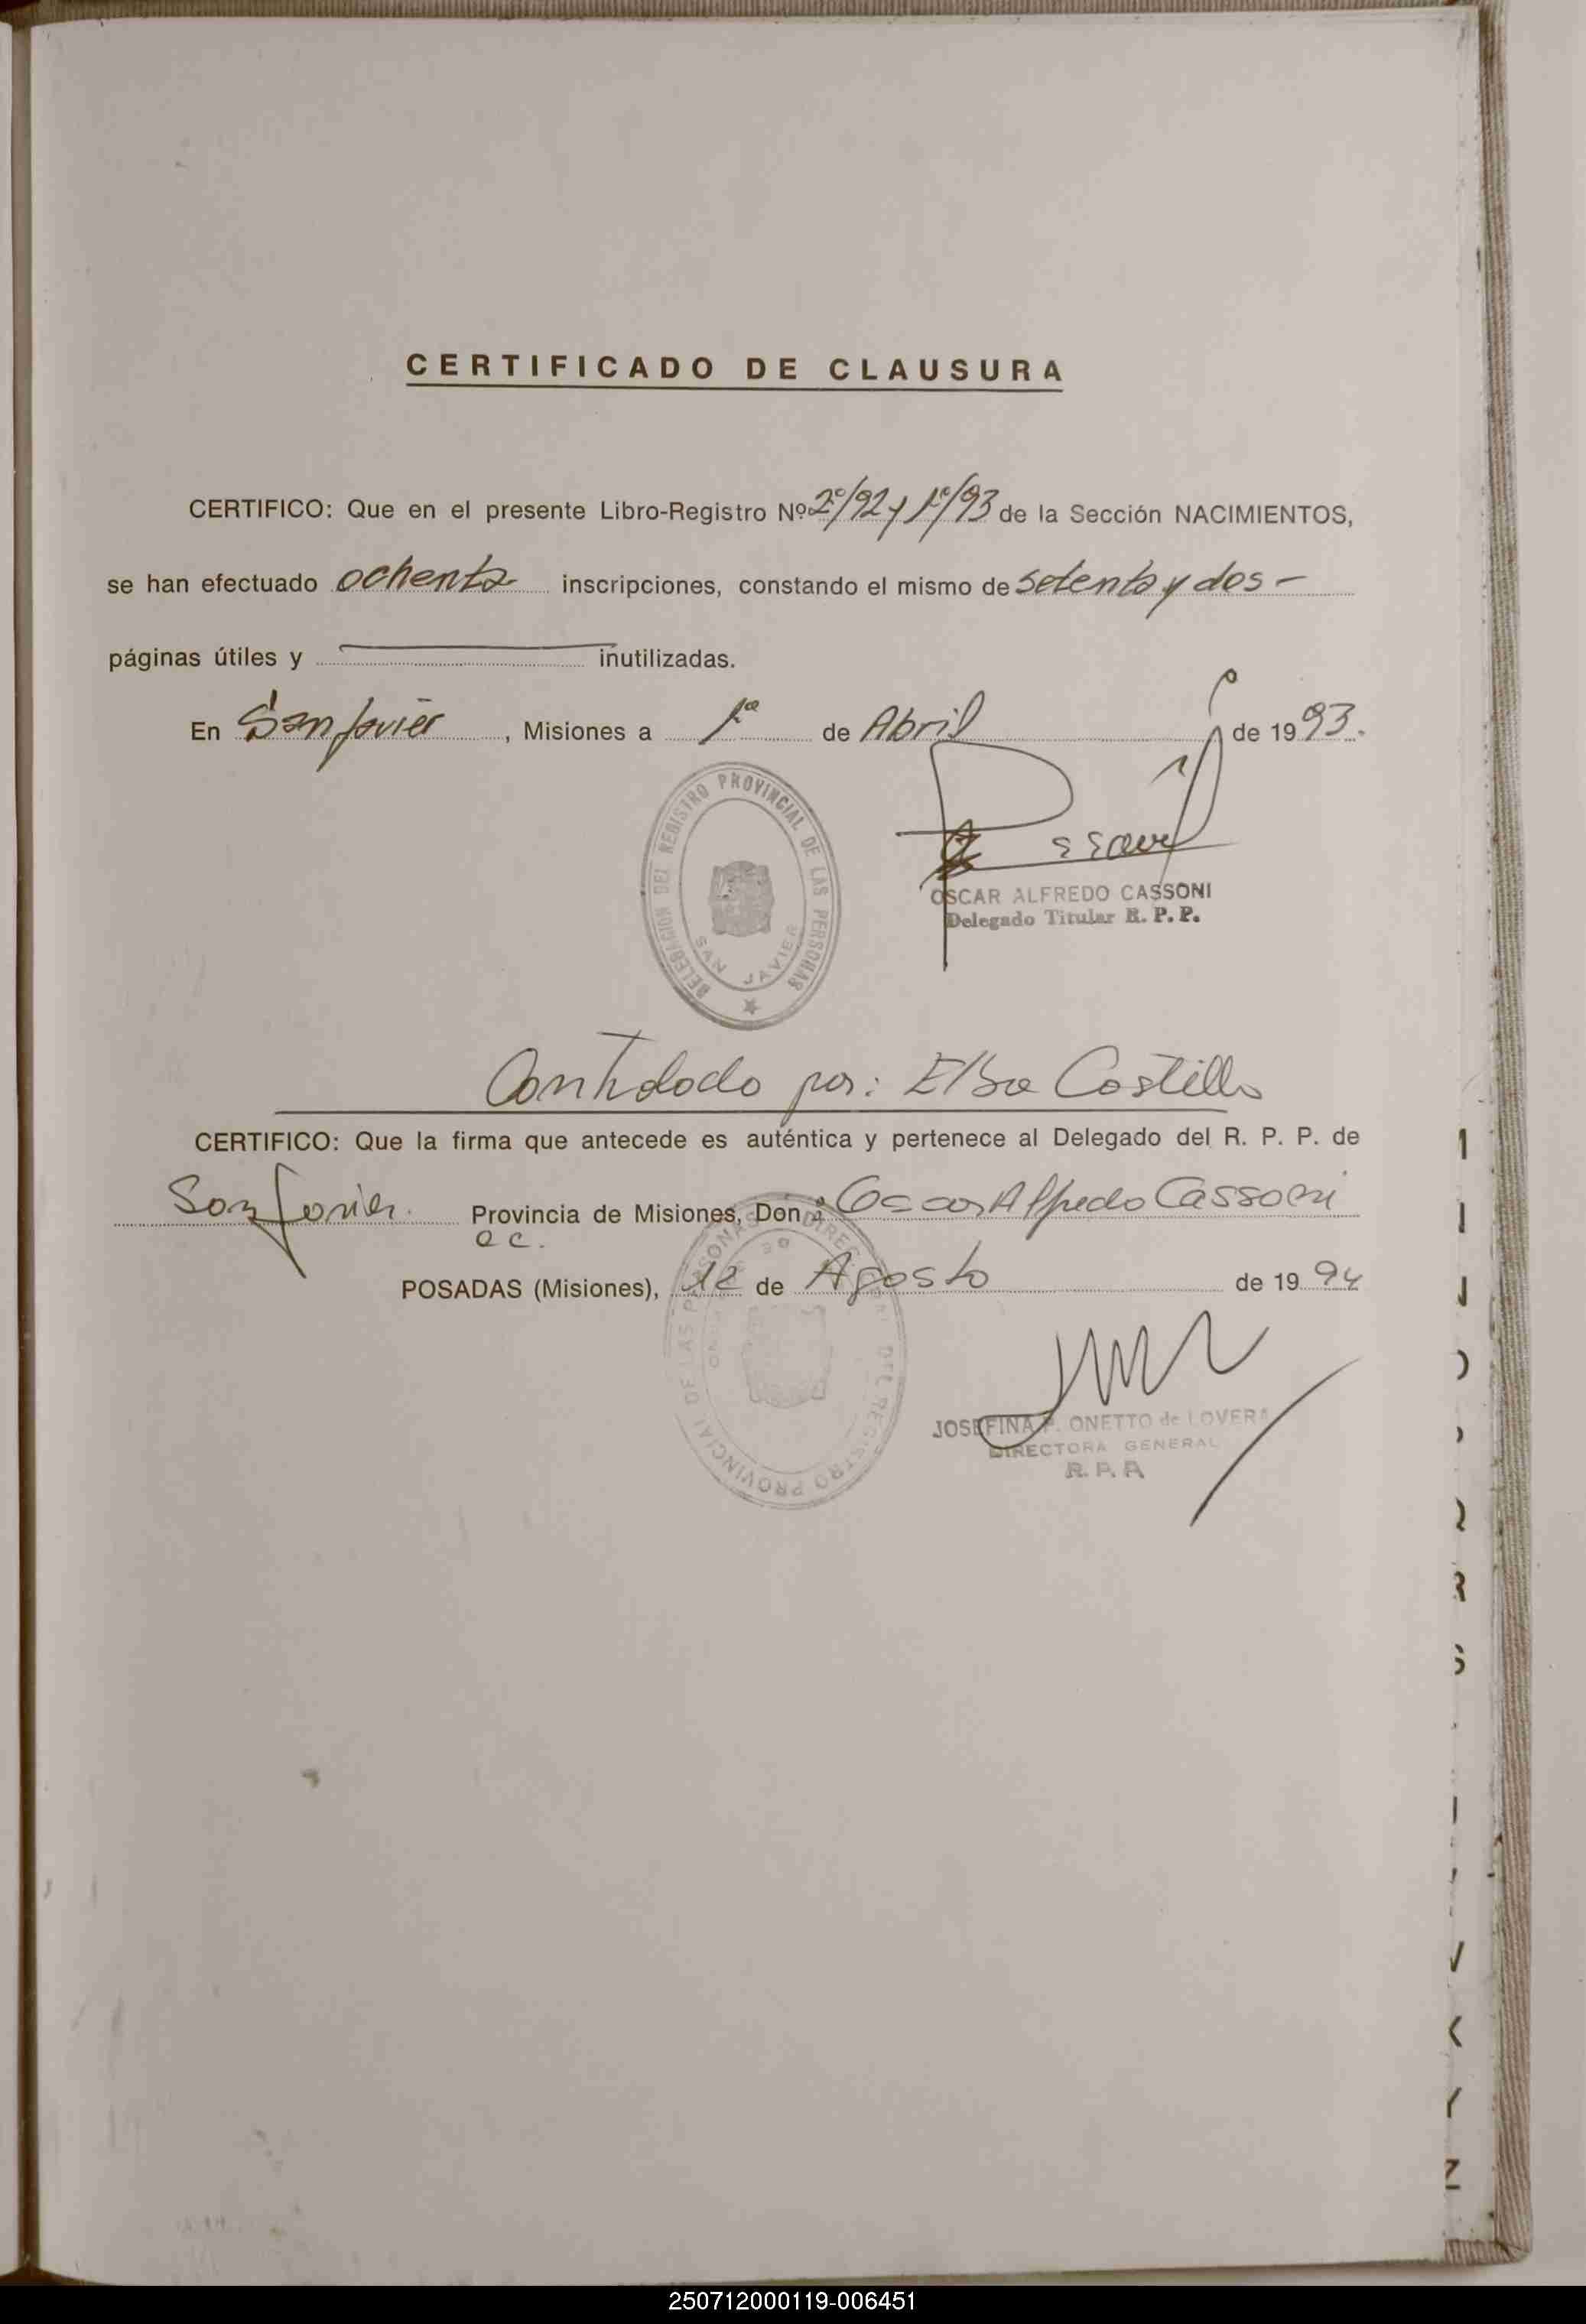 CERTIFICADO DE CLAUSURA
CERTIFICO: Que en el presente Libro-Registro Nº 2º/92 y 1º/93 de la Sección NACIMIENTOS,
se han efectuado ochenta inscripciones, constando el mismo de setenta y dos -
páginas útiles y inutilizadas.
En San Javier, Misiones a 1º de Abril de 1993.
DELEGACION DEL REGISTRO PROVINCIAL DE LAS PERSONAS
SAN JAVIER
OSCAR ALFREDO CASSONI
Delegado Titular R. P. P.
Controlado por: Elba Castillo
CERTIFICO: Que la firma que antecede es auténtica y pertenece al Delegado del R. P. P. de
San Javier. Provincia de Misiones, Don Oscar Alfredo Cassoni
POSADAS (Misiones), 12 de Agosto de 1994
DEL REGISTRO PROVINCIAL DE LAS PERSONAS
JOSEFINA P. ONETTO de LOVERA
DIRECTORA GENERAL
R. P. P.
S
Z
250712000119-006451